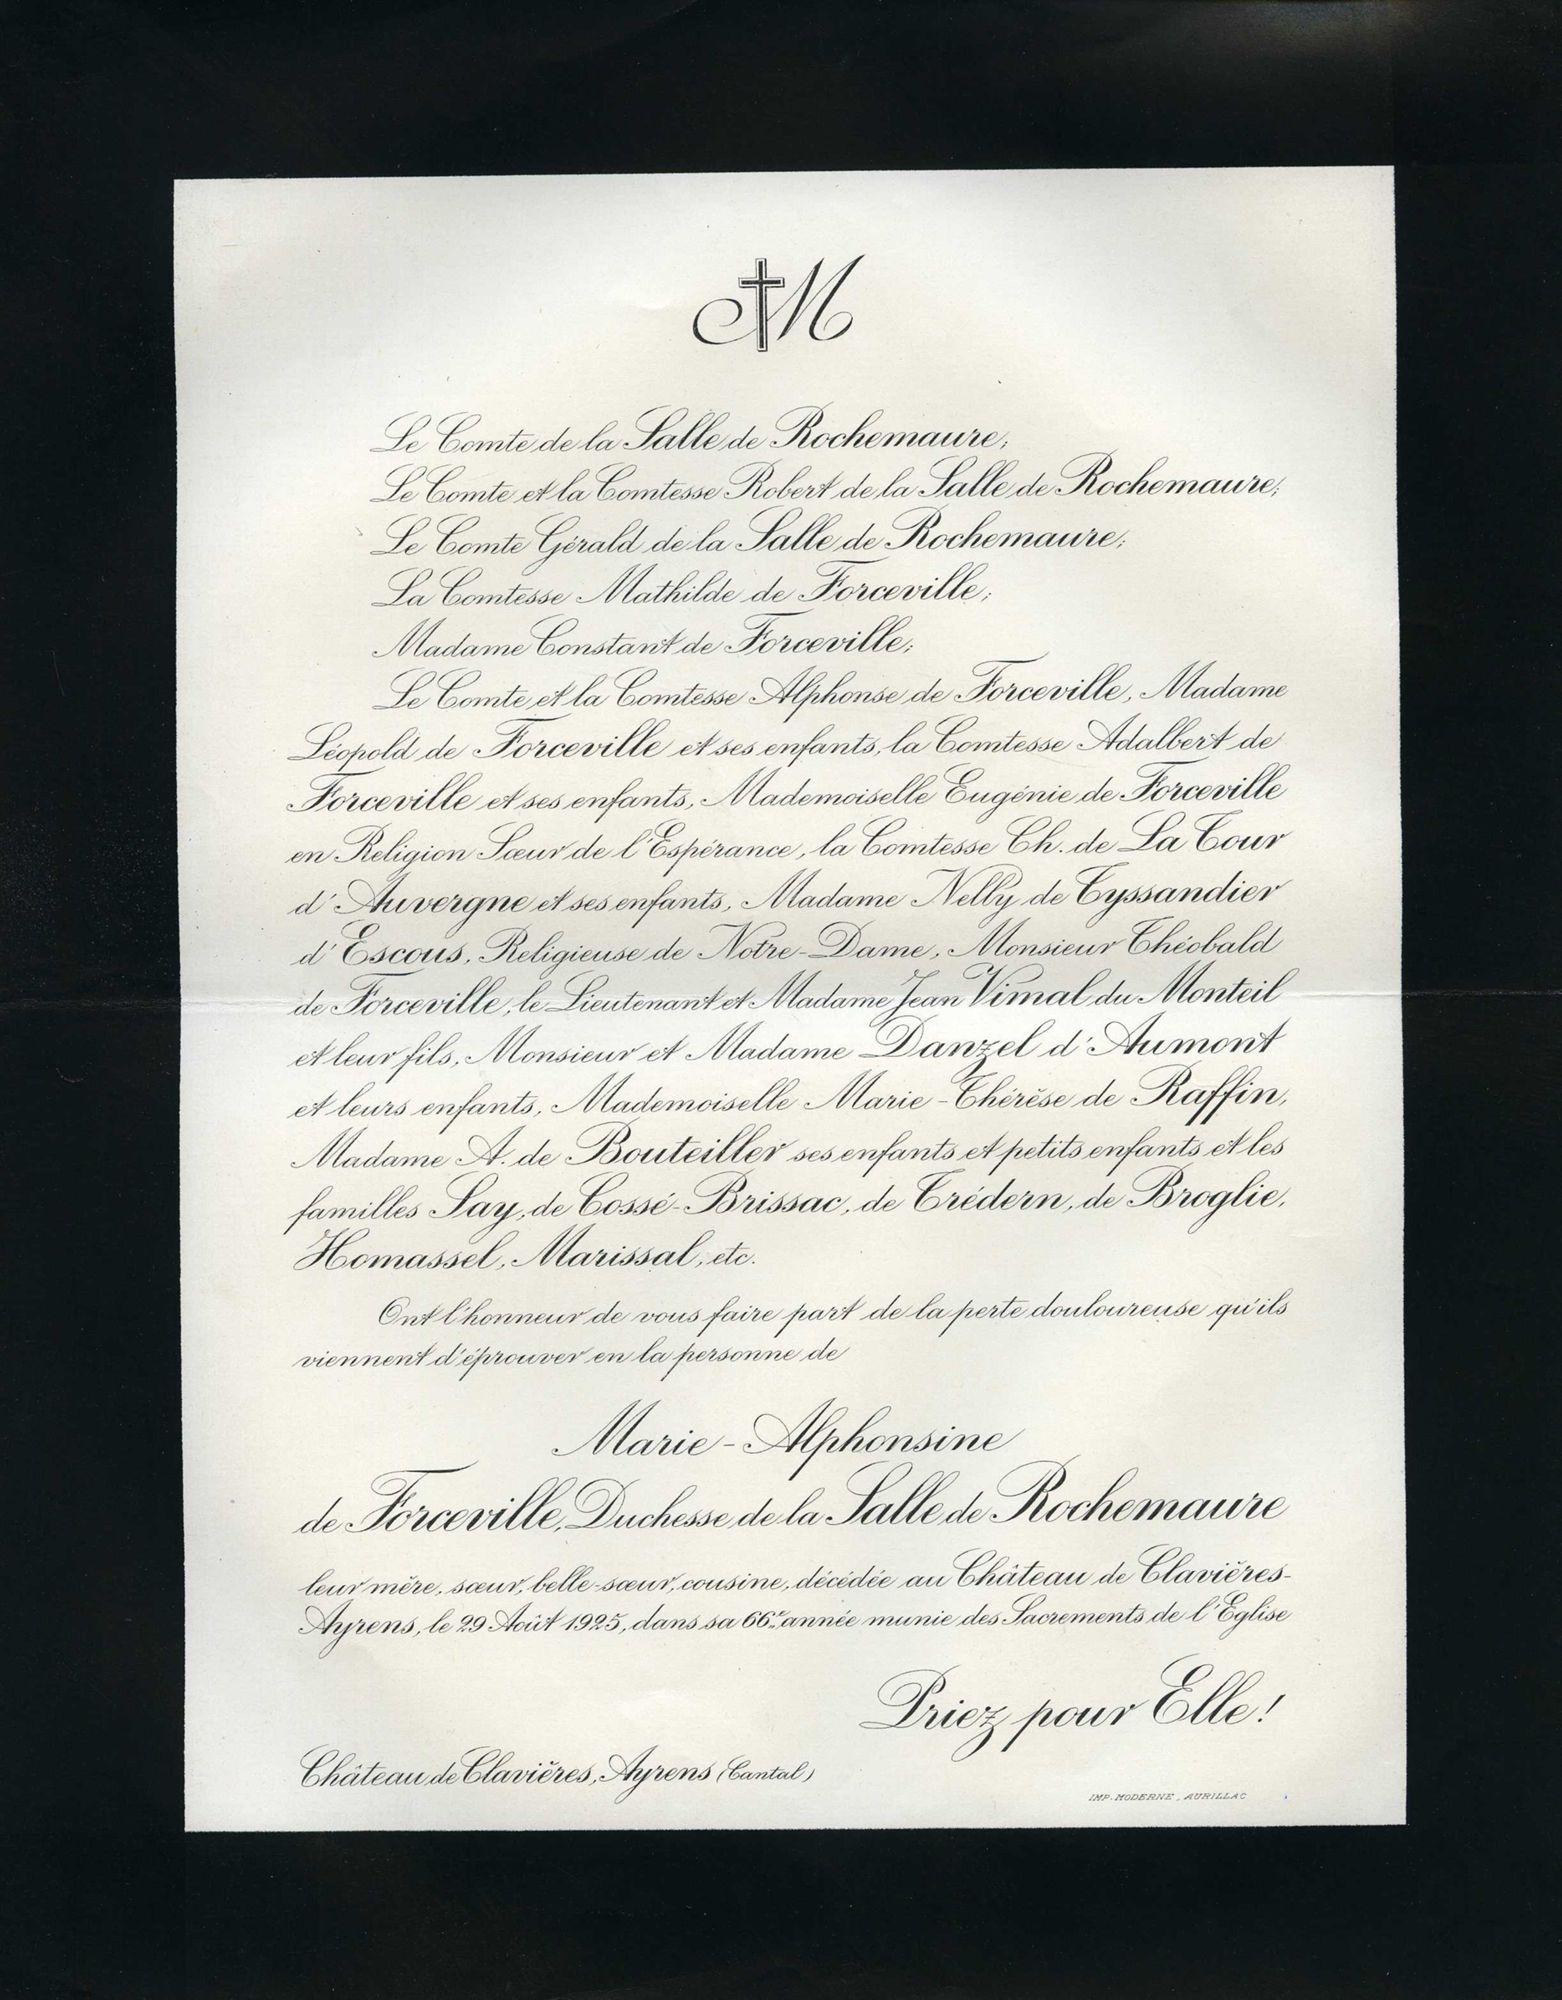 M
Le Comte de la Salle de Rochemaure;
Le Comte et la Comtesse Robert de la Salle de Rochemaure;
Le Comte Gérald de la Salle de Rochemaure;
La Comtesse Mathilde de Forceville;
Madame Constant de Forceville;
Le Comte et la Comtesse Alphonse de Forceville, Madame
Léopold de Forceville et ses enfants, la Comtesse Adalbert de
Forceville et ses enfants, Mademoiselle Eugénie de Forceville
en Religion Sœur de l'Espérance, la Comtesse Ch. de La Tour
d'Auvergne et ses enfants, Madame Nelly de Tyssandier
d'Escous, Religieuse de Notre-Dame, Monsieur Théobald
de Forceville, le Lieutenant et Madame Jean Vimal du Monteil
et leur fils, Monsieur et Madame Danzel d'Aumont
et leurs enfants, Mademoiselle Marie-Thérèse de Raffin,
Madame A. de Bouteiller ses enfants et petits enfants et les
familles Say, de Cossé-Brissac, de Trédern, de Broglie,
Homassel, Marissal, etc.
Ont l'honneur de vous faire part de la perte douloureuse qu'ils
viennent d'éprouver en la personne de
Marie-Alphonsine
de Forceville, Duchesse de la Salle de Rochemaure
leur mère, sœur, belle-sœur, cousine, décédée au Château de Clavières-
Ayrens, le 29 Août 1925, dans sa 66e année munie des Sacrements de l'Eglise
Priez pour Elle!
Château de Clavières, Ayrens (Cantal)
IMP. MODERNE, AURILLAC